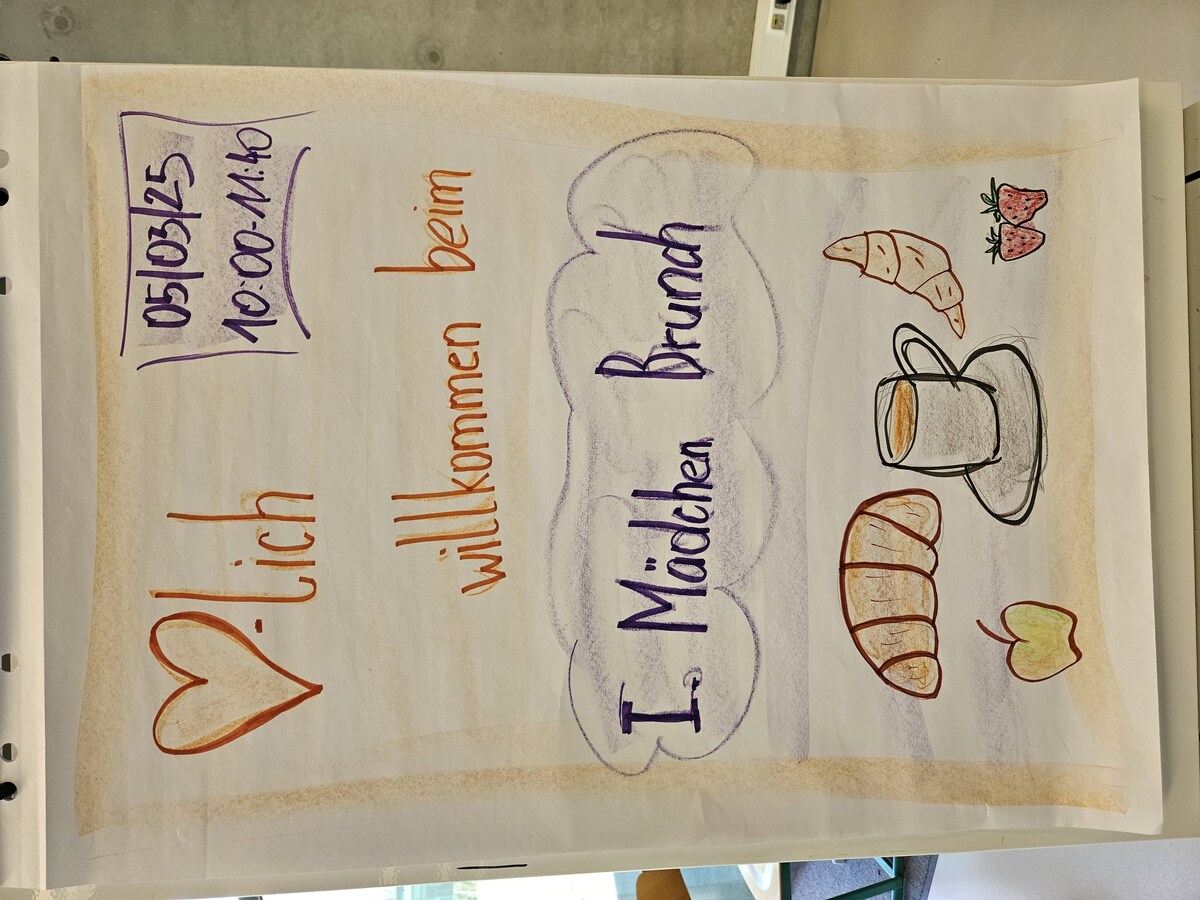 05/03/25
10:00-11:40
♥-lich
willkommen beim
I. Mädchen Brunch